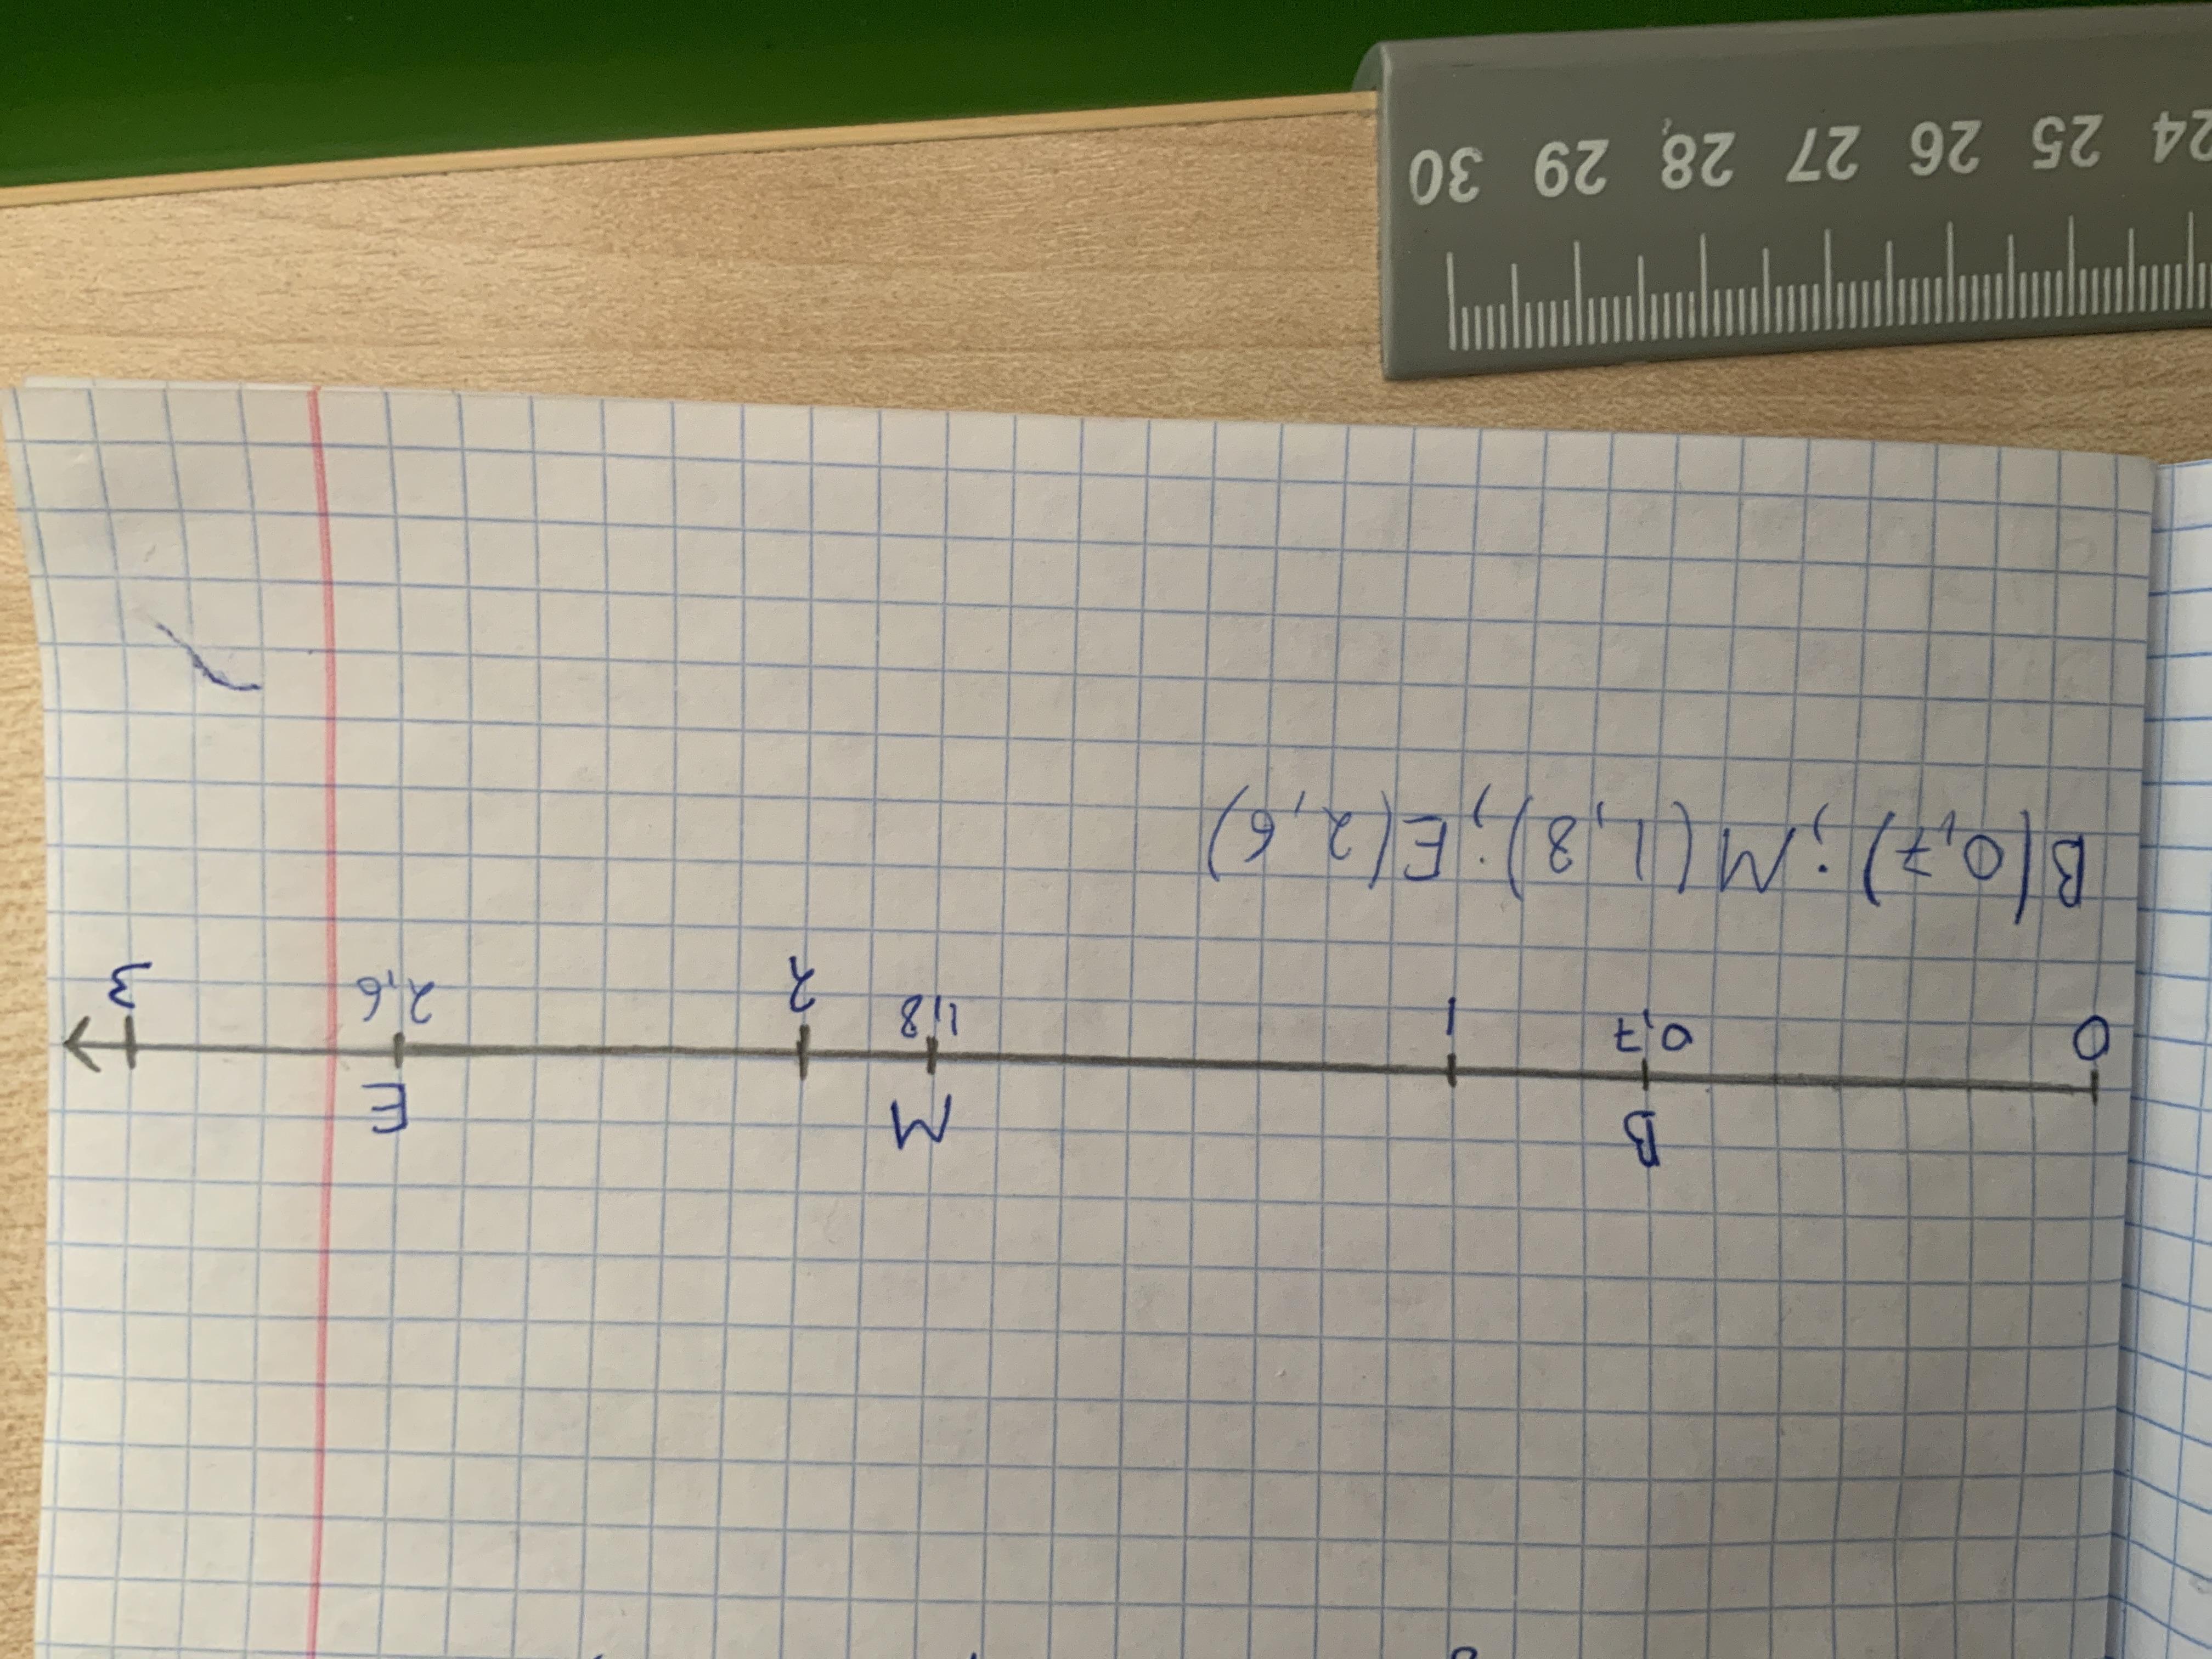 B M E
0 0,7 1 1,8 2 2,6 3
B(0,7); M(1,8); E(2,6)
24 25 26 27 28 29 30